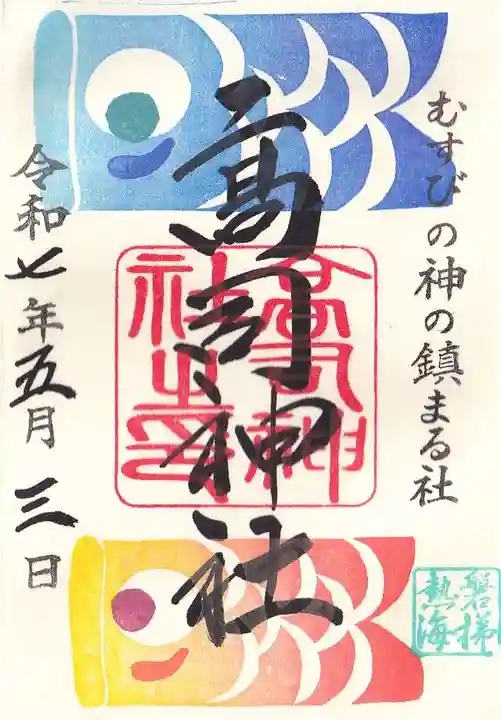 むすびの神の鎮まる社
高司神社
令和七年五月三日
高司神
社之印
磐梯
熱海